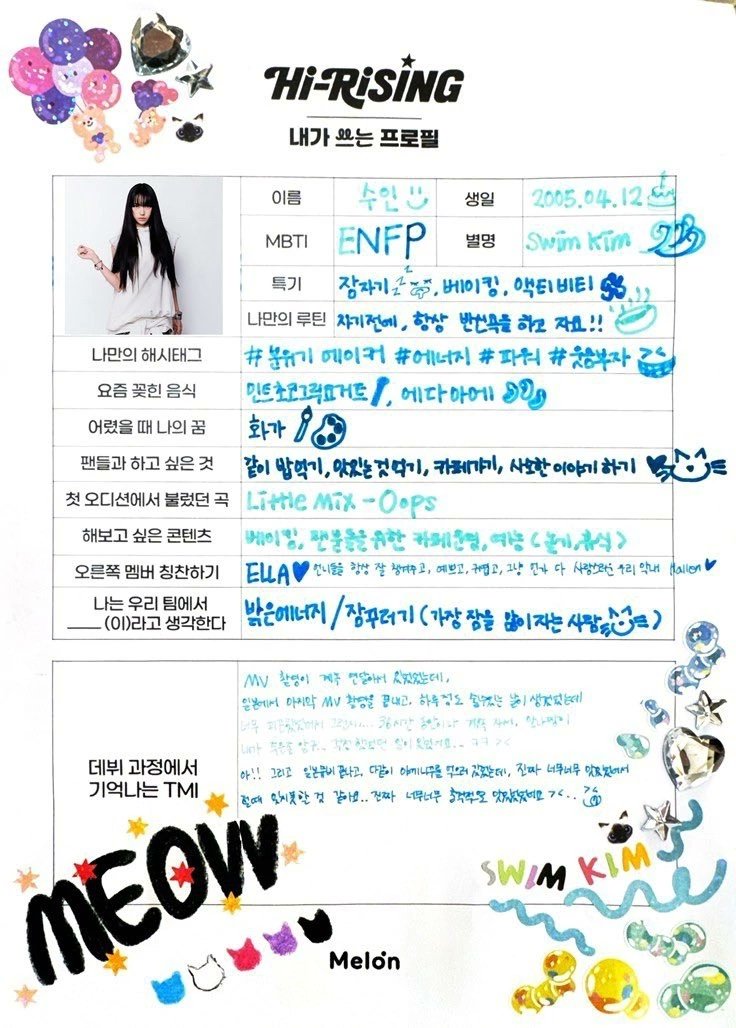 Hi-RiSiNG
내가 쓰는 프로필
이름 수인 생일 2005.04.12
MBTI ENFP 별명 Swim Kim
특기 잠자기 zzz, 베이킹, 액티비티
나만의 루틴 자기전에, 항상 반신욕을 하고 자요!!
나만의 해시태그 #분위기 메이커 #에너지 #파워 #웃음부자 ><
요즘 꽂힌 음식 민트초코그릭요거트, 에다마메
어렸을 때 나의 꿈 화가
팬들과 하고 싶은 것 같이 밥먹기, 맛있는것 먹기, 카페가기, 사소한 이야기 하기
첫 오디션에서 불렀던 곡 Little Mix - Oops
해보고 싶은 콘텐츠 베이킹, 팬분들을 위한 카페운영, 예능
오른쪽 멤버 칭찬하기 ELLA♥ 언니들을 항상 잘 챙겨주고, 예쁘고, 귀엽고, 그냥 다 사랑스러운 우리 막내 ♥
나는 우리 팀에서
____ (이)라고 생각한다 밝은에너지 / 잠꾸러기 (가장 잠을 많이 자는 사람)
데뷔 과정에서
기억나는 TMI
MV 촬영이 계속 연달아서 있었었는데,
일본에서 마지막 MV 촬영을 끝내고, 하루정도 쉴수있는 날이 생겼었는데
너무 피곤했었어서 36시간 계속 자서,
ㅋㅋ ><
아!! 그리고 일본 끝나고, 다같이 야끼니꾸를 먹으러 갔었는데, 진짜 너무너무 맛있었어서
절대 잊지못할 것 같아요.. 진짜 너무너무 충격적으로 맛있었어요 ><..
MEOW
SWIM KIM
Melon